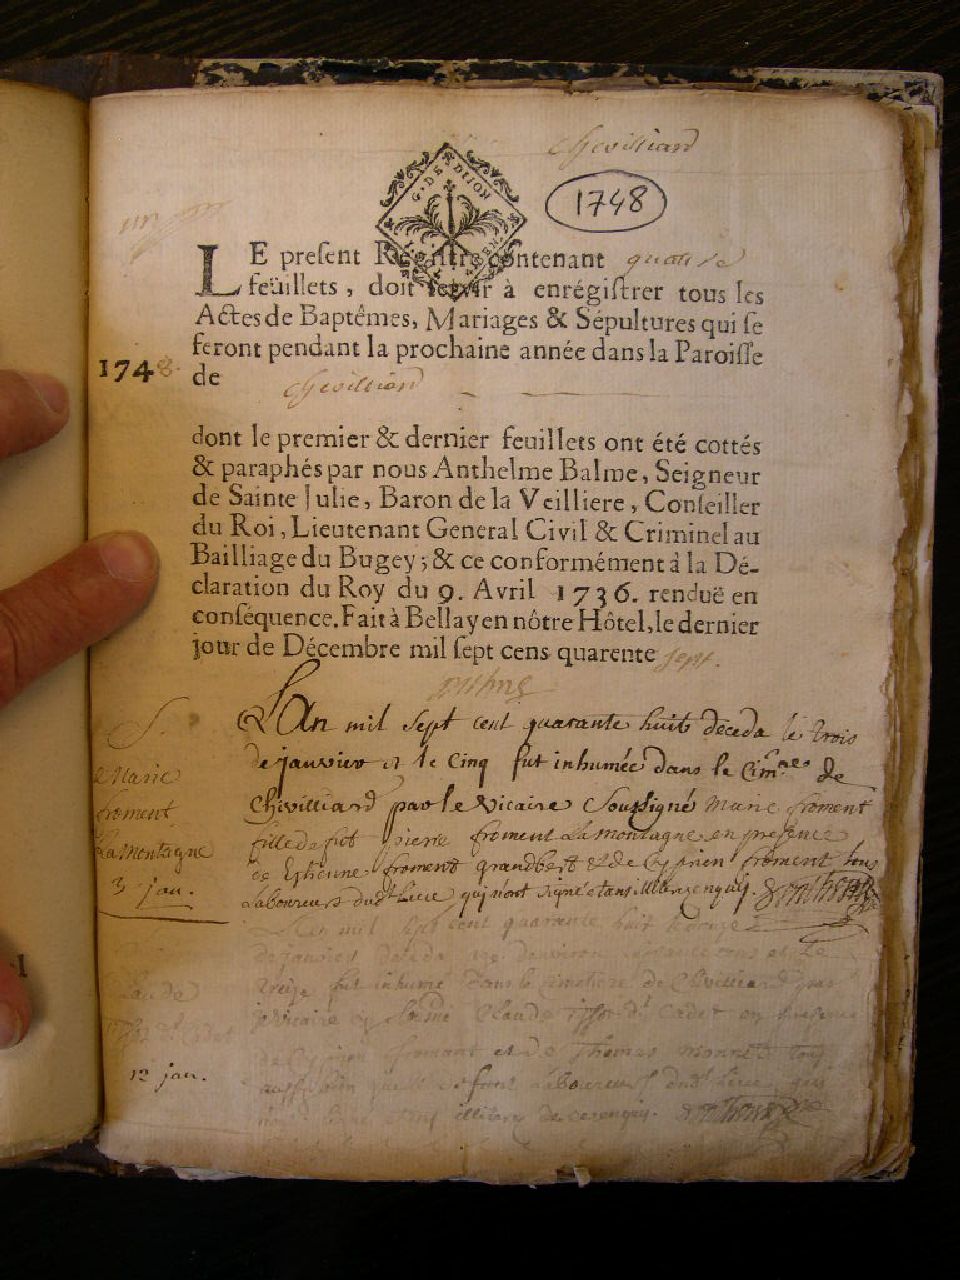 Chevilliard
1748
G. DE DIJON
LE present Registre contenant quatorze
feüillets, doit servir à enrégistrer tous les
Actes de Baptêmes, Mariages & Sépultures qui se
feront pendant la prochaine année dans la Paroisse
1748.
de Chevilliard
dont le premier & dernier feuillets ont été cottés
& paraphés par nous Anthelme Balme, Seigneur
de Sainte Julie, Baron de la Veilliere, Conseiller
du Roi, Lieutenant General Civil & Criminel au
Bailliage du Bugey; & ce conformément à la Dé-
claration du Roy du 9. Avril 1736. renduë en
conséquence. Fait à Bellay en nôtre Hôtel, le dernier
jour de Décembre mil sept cens quarente sept.
S.
Marie
froment
La montagne
3 jan.
L'an mil sept cent quarante huit deceda le trois
de janvier et le cinq fut inhumée dans le Cim.re de
Chevilliard par le vicaire soussigné marie froment
fille de fut pierre froment La montagne en presence
de Estienne froment grandbert et de Cyprien froment tous
Laboureurs dud.t Lieu qui n'ont signé
L'an mil sept cent quarante huit le douze
de janvier deceda et le
treize fut inhumé dans le cimetiere de Chevilliard par
le vicaire Claude dit Cadet en presence
de Cyprien fromant et de Thomas tous
Laboureurs dud.t Lieu
Claude
dit Cadet
12 jan.